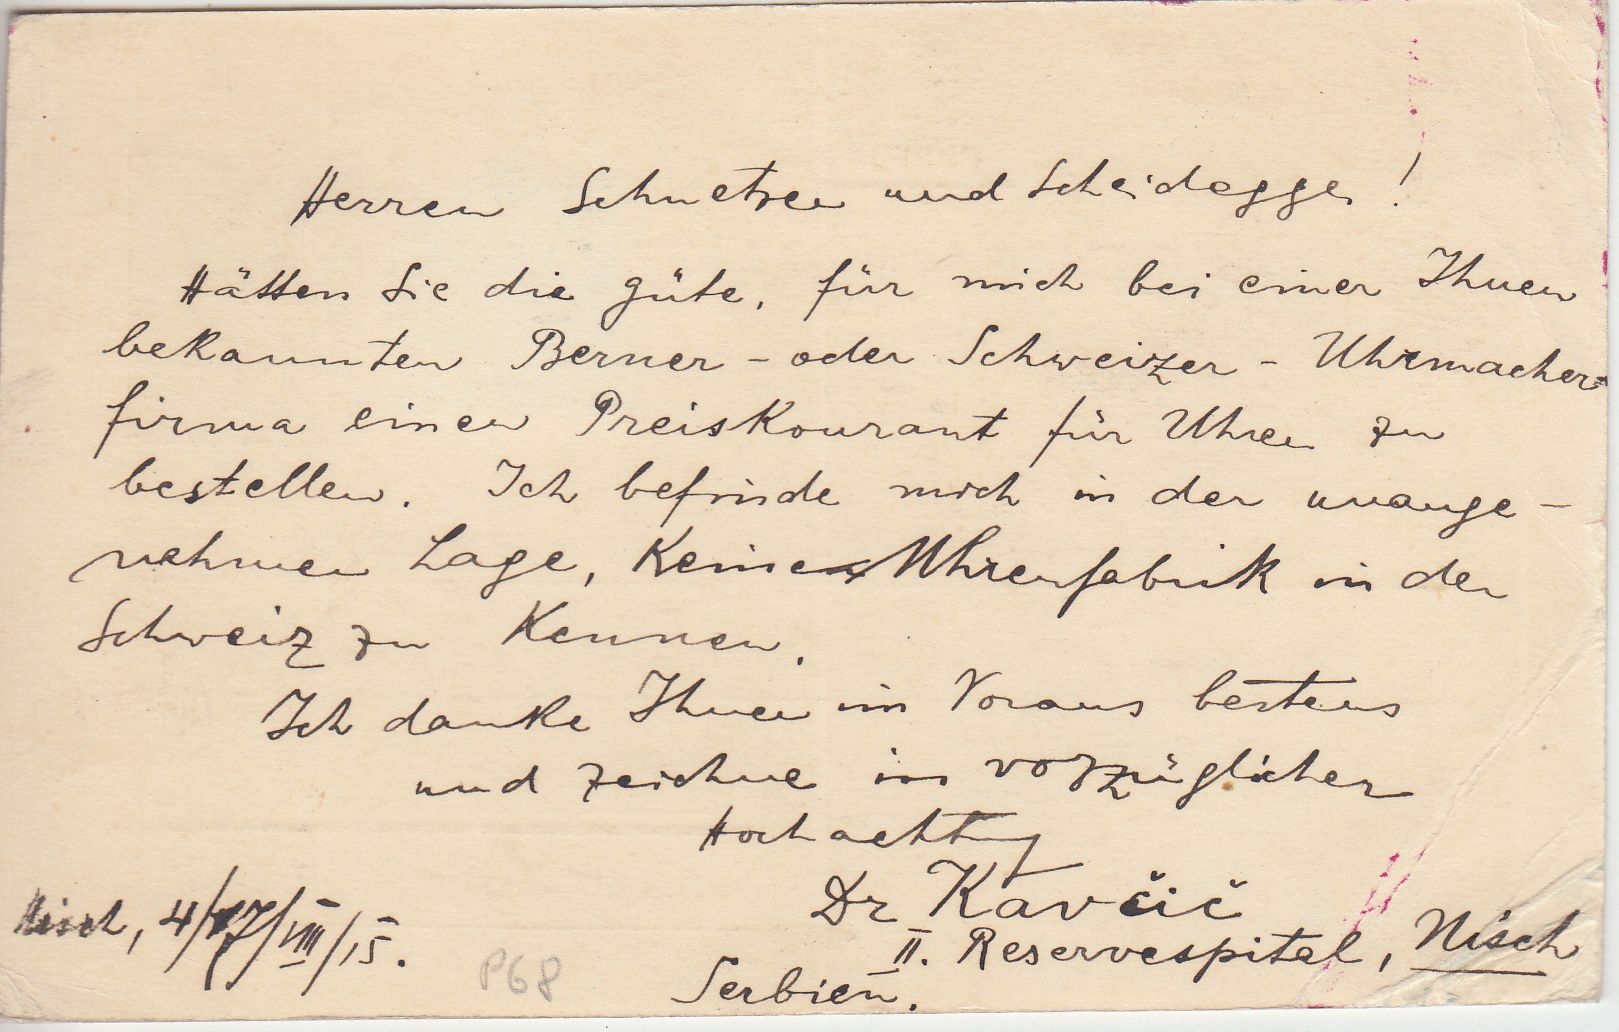 Herren Schnetzer und Scheidegger!
Hätten Sie die Güte, für mich bei einer Ihnen
bekannten Berner - oder Schweizer - Uhrmacher=
firma einen Preiskourant für Uhren zu
bestellen. Ich befinde mich in der unange-
nehmen Lage, keine Uhrenfabrik in der
Schweiz zu kennen.
Ich danke Ihnen im Voraus bestens
und zeichne in vorzüglicher
Hochachtung
Dr Kavčič
II. Reservespital, Nisch
Serbien.
Nisch, 4/17/VIII/15.
P68